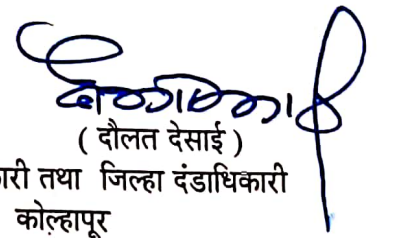 ( दौलत देसाई )
ारी तथा जिल्हा दंडाधिकारी
कोल्हापूर